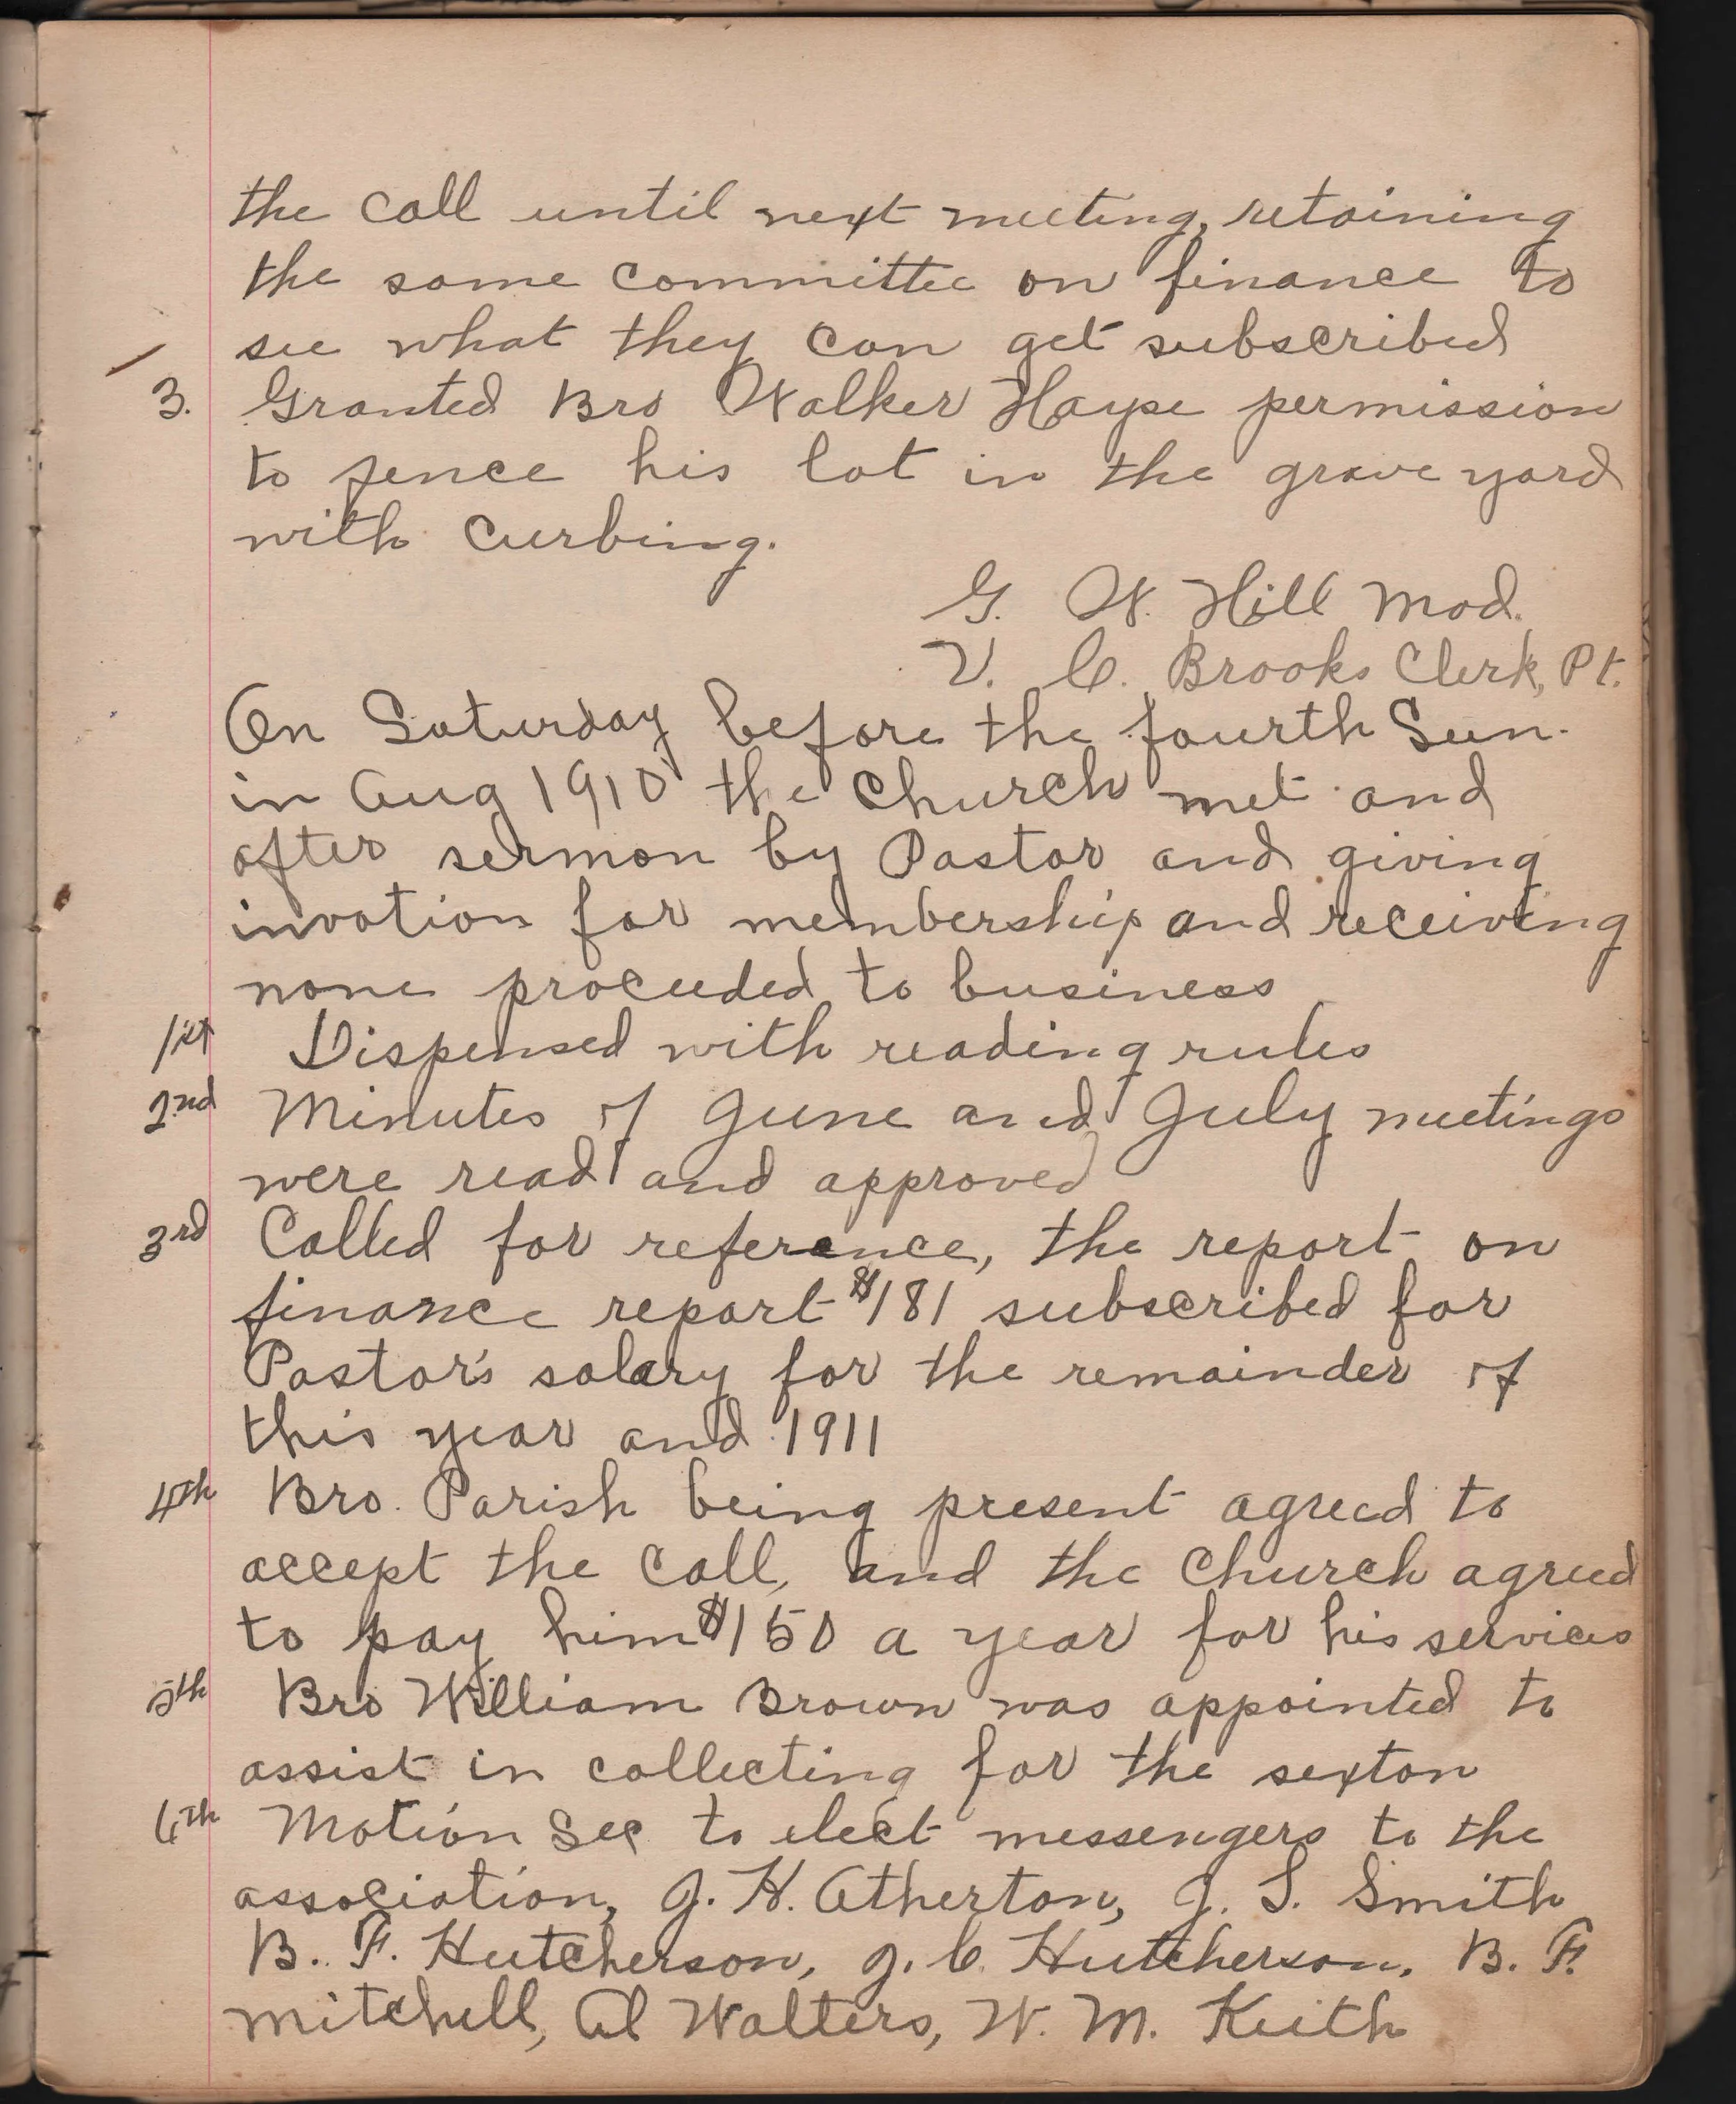 the call until next meeting, retaining
the same committee on finance to
see what they can get subscribed
3. Granted Bro Walker Hayse permission
to fence his lot in the grave yard
with curbing.
G. W. Hill Mod.
V. C. Brooks Clerk, Pt.
On Saturday before the fourth Sun.
in Aug 1910 the Church met and
after sermon by Pastor and giving
invation for membership and receiving
none proceeded to business
1st Dispensed with reading rules
2nd Minutes of June and July meetings
were read and approved
3rd Called for reference, the report on
finance report $181 subscribed for
Pastor's salary for the remainder of
this year and 1911
4th Bro. Parish being present agreed to
accept the call, and the Church agreed
to pay him $150 a year for his services
5th Bro William Brown was appointed to
assist in collecting for the sexton
6th Motion Sec to elect messengers to the
association, J. H. Atherton, J. S. Smith
B. F. Hutcherson, J. C. Hutcherson, B. F.
Mitchell, Al Walters, W. M. Keith